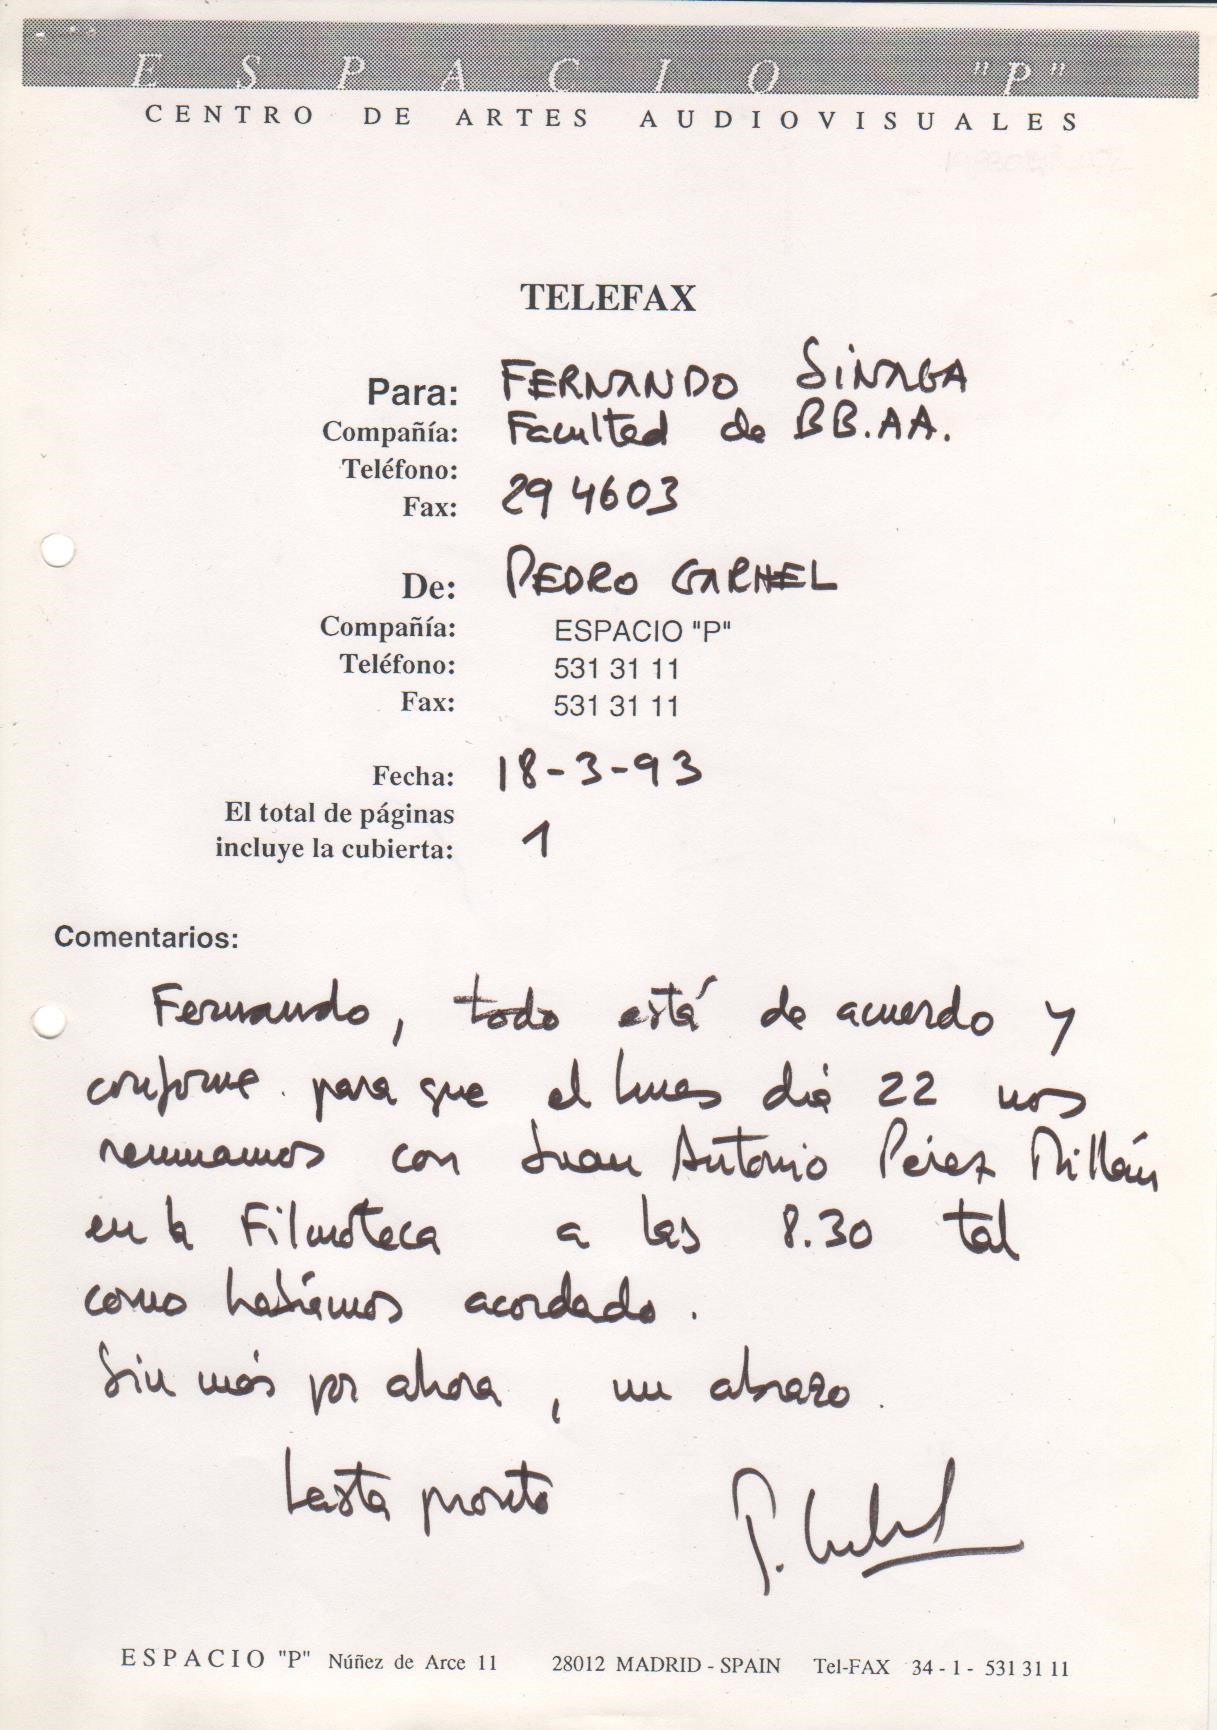 ESPACIO "P"
CENTRO DE ARTES AUDIOVISUALES
TELEFAX
Para: FERNANDO SINAGA
Compañía: Facultad de BB.AA.
Teléfono:
Fax: 29 4603
De: PEDRO GARHEL
Compañía: ESPACIO "P"
Teléfono: 531 31 11
Fax: 531 31 11
Fecha: 18-3-93
El total de páginas
incluye la cubierta: 1
Comentarios:
Fernando, todo está de acuerdo y
conforme para que el lunes día 22 nos
reunamos con Juan Antonio Pérez Millán
en la Filmoteca a las 8.30 tal
como habíamos acordado.
Sin más por ahora, un abrazo.
hasta pronto
ESPACIO "P" Núñez de Arce 11 28012 MADRID - SPAIN Tel-FAX 34 - 1 - 531 31 11